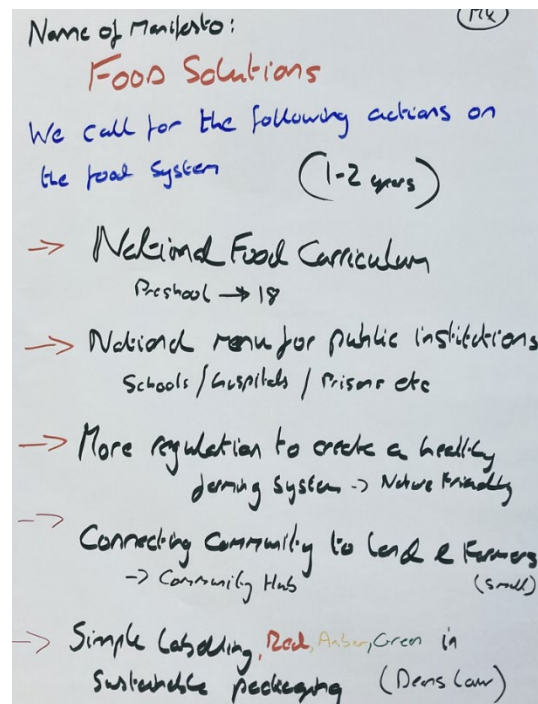 Name of Manifesto:
Food Solutions
We call for the following actions on
the food system (1-2 years)
→ National Food Curriculum
Preschool → 18
→ National menu for public institutions
Schools / hospitals / Prisons etc
→ More regulation to create a healthy
farming system → Nature Friendly
→ Connecting Community to land & Farmers
→ Community Hub (small)
→ Simple Labelling, Red, Amber, Green in
Sustainable packaging (Deans Law)